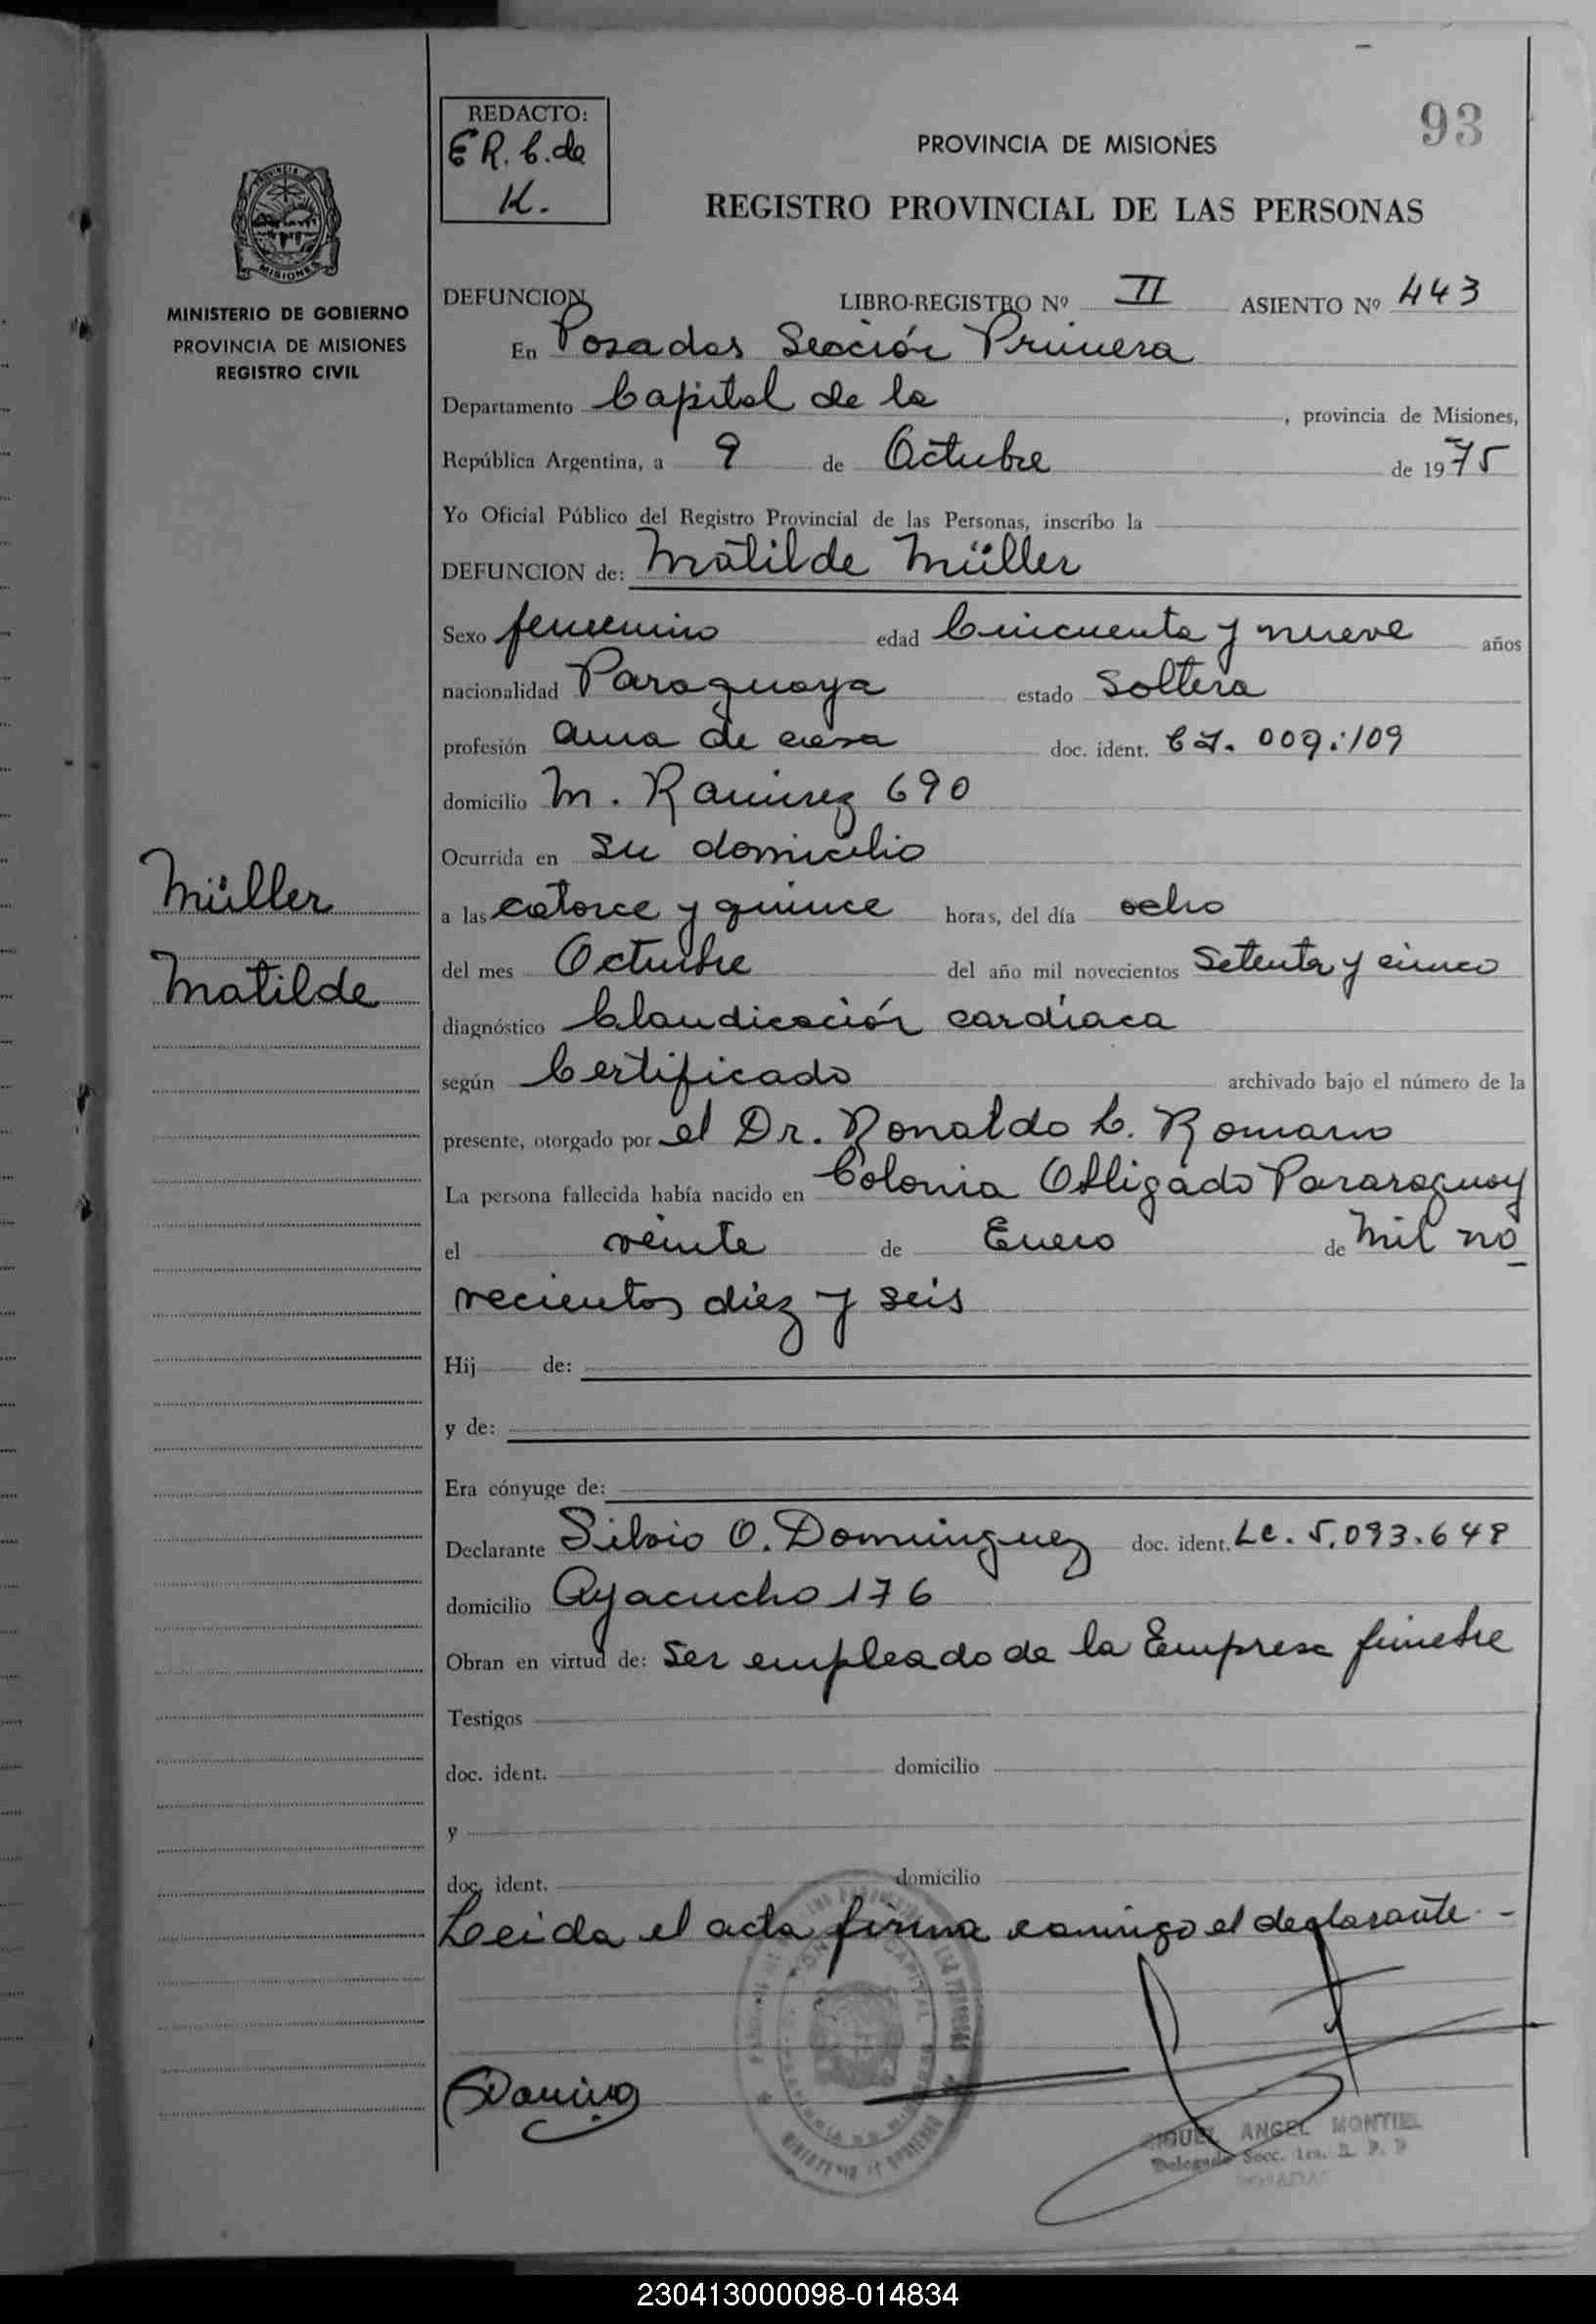 93
REDACTO:
E R. C. de
K.
PROVINCIA DE MISIONES
REGISTRO PROVINCIAL DE LAS PERSONAS
MISIONES
MINISTERIO DE GOBIERNO
PROVINCIA DE MISIONES
REGISTRO CIVIL
DEFUNCION LIBRO-REGISTRO Nº II ASIENTO Nº 443
En Posadas Sección Primera
Departamento Capital de la , provincia de Misiones,
República Argentina, a 9 de Octubre de 1975
Yo Oficial Público del Registro Provincial de las Personas, inscribo la
DEFUNCION de: Matilde Müller
Sexo femenino edad Cincuenta y nueve años
nacionalidad Paraguaya estado Soltera
profesión ama de casa doc. ident. C I. 009.109
domicilio M. Ramirez 690
Ocurrida en su domicilio
Müller
a las catorce y quince horas, del día ocho
Matilde
del mes Octubre del año mil novecientos Setenta y cinco
diagnóstico Claudicación cardíaca
según Certificado archivado bajo el número de la
presente, otorgado por el Dr. Ronaldo C. Romano
La persona fallecida había nacido en Colonia Obligado Pararaguay
el veinte de Enero de Mil no
vecientos diez y seis
Hij de:
y de:
Era cónyuge de:
Declarante Silvio O. Dominguez doc. ident. L.e. 5.093.648
domicilio Ayacucho 176
Obran en virtud de: Ser empleado de la Empresa fúnebre
Testigos
doc. ident. domicilio
y
doc. ident. domicilio
Leida el acta firma conmigo el declarante. -
MIGUEL ANGEL MONTIEL
Delegado Secc. 1ra. R. P. P
POSADAS
230413000098-014834